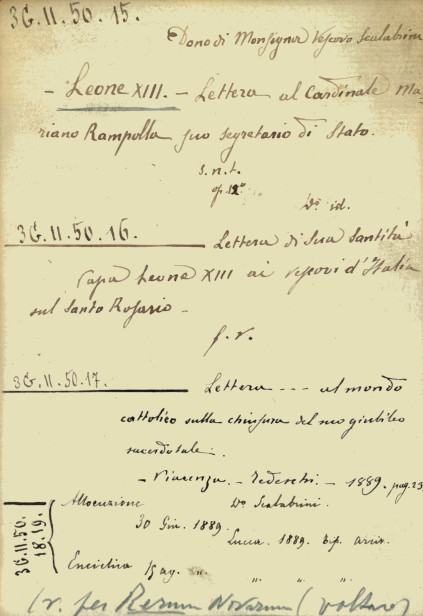 3G.II.50.15.
Dono di Monsignor Vescovo Scalabrini
- Leone XIII. - Lettera al Cardinale Ma-
riano Rampolla suo segretario di Stato.
s.n.t.
op. 12°
D° id.
3G.II.50.16.
Lettera di Sua Santità
Papa Leone XIII ai Vescovi d'Italia
sul Santo Rosario -
f. v.
3G.II.50.17.
Lettera - - - al mondo
cattolico sulla chiusura del suo giubileo
sacerdotale.
- Piacenza. - Tedeschi. - 1889. pag. 23
3G.II.50.
18.19.
Allocuzione D° Scalabrini.
30 Giu. 1889.
Lucca. 1889. tip. arciv.
Enciclica 15 ag. " " " "
(v. per Rerum Novarum (voltare)